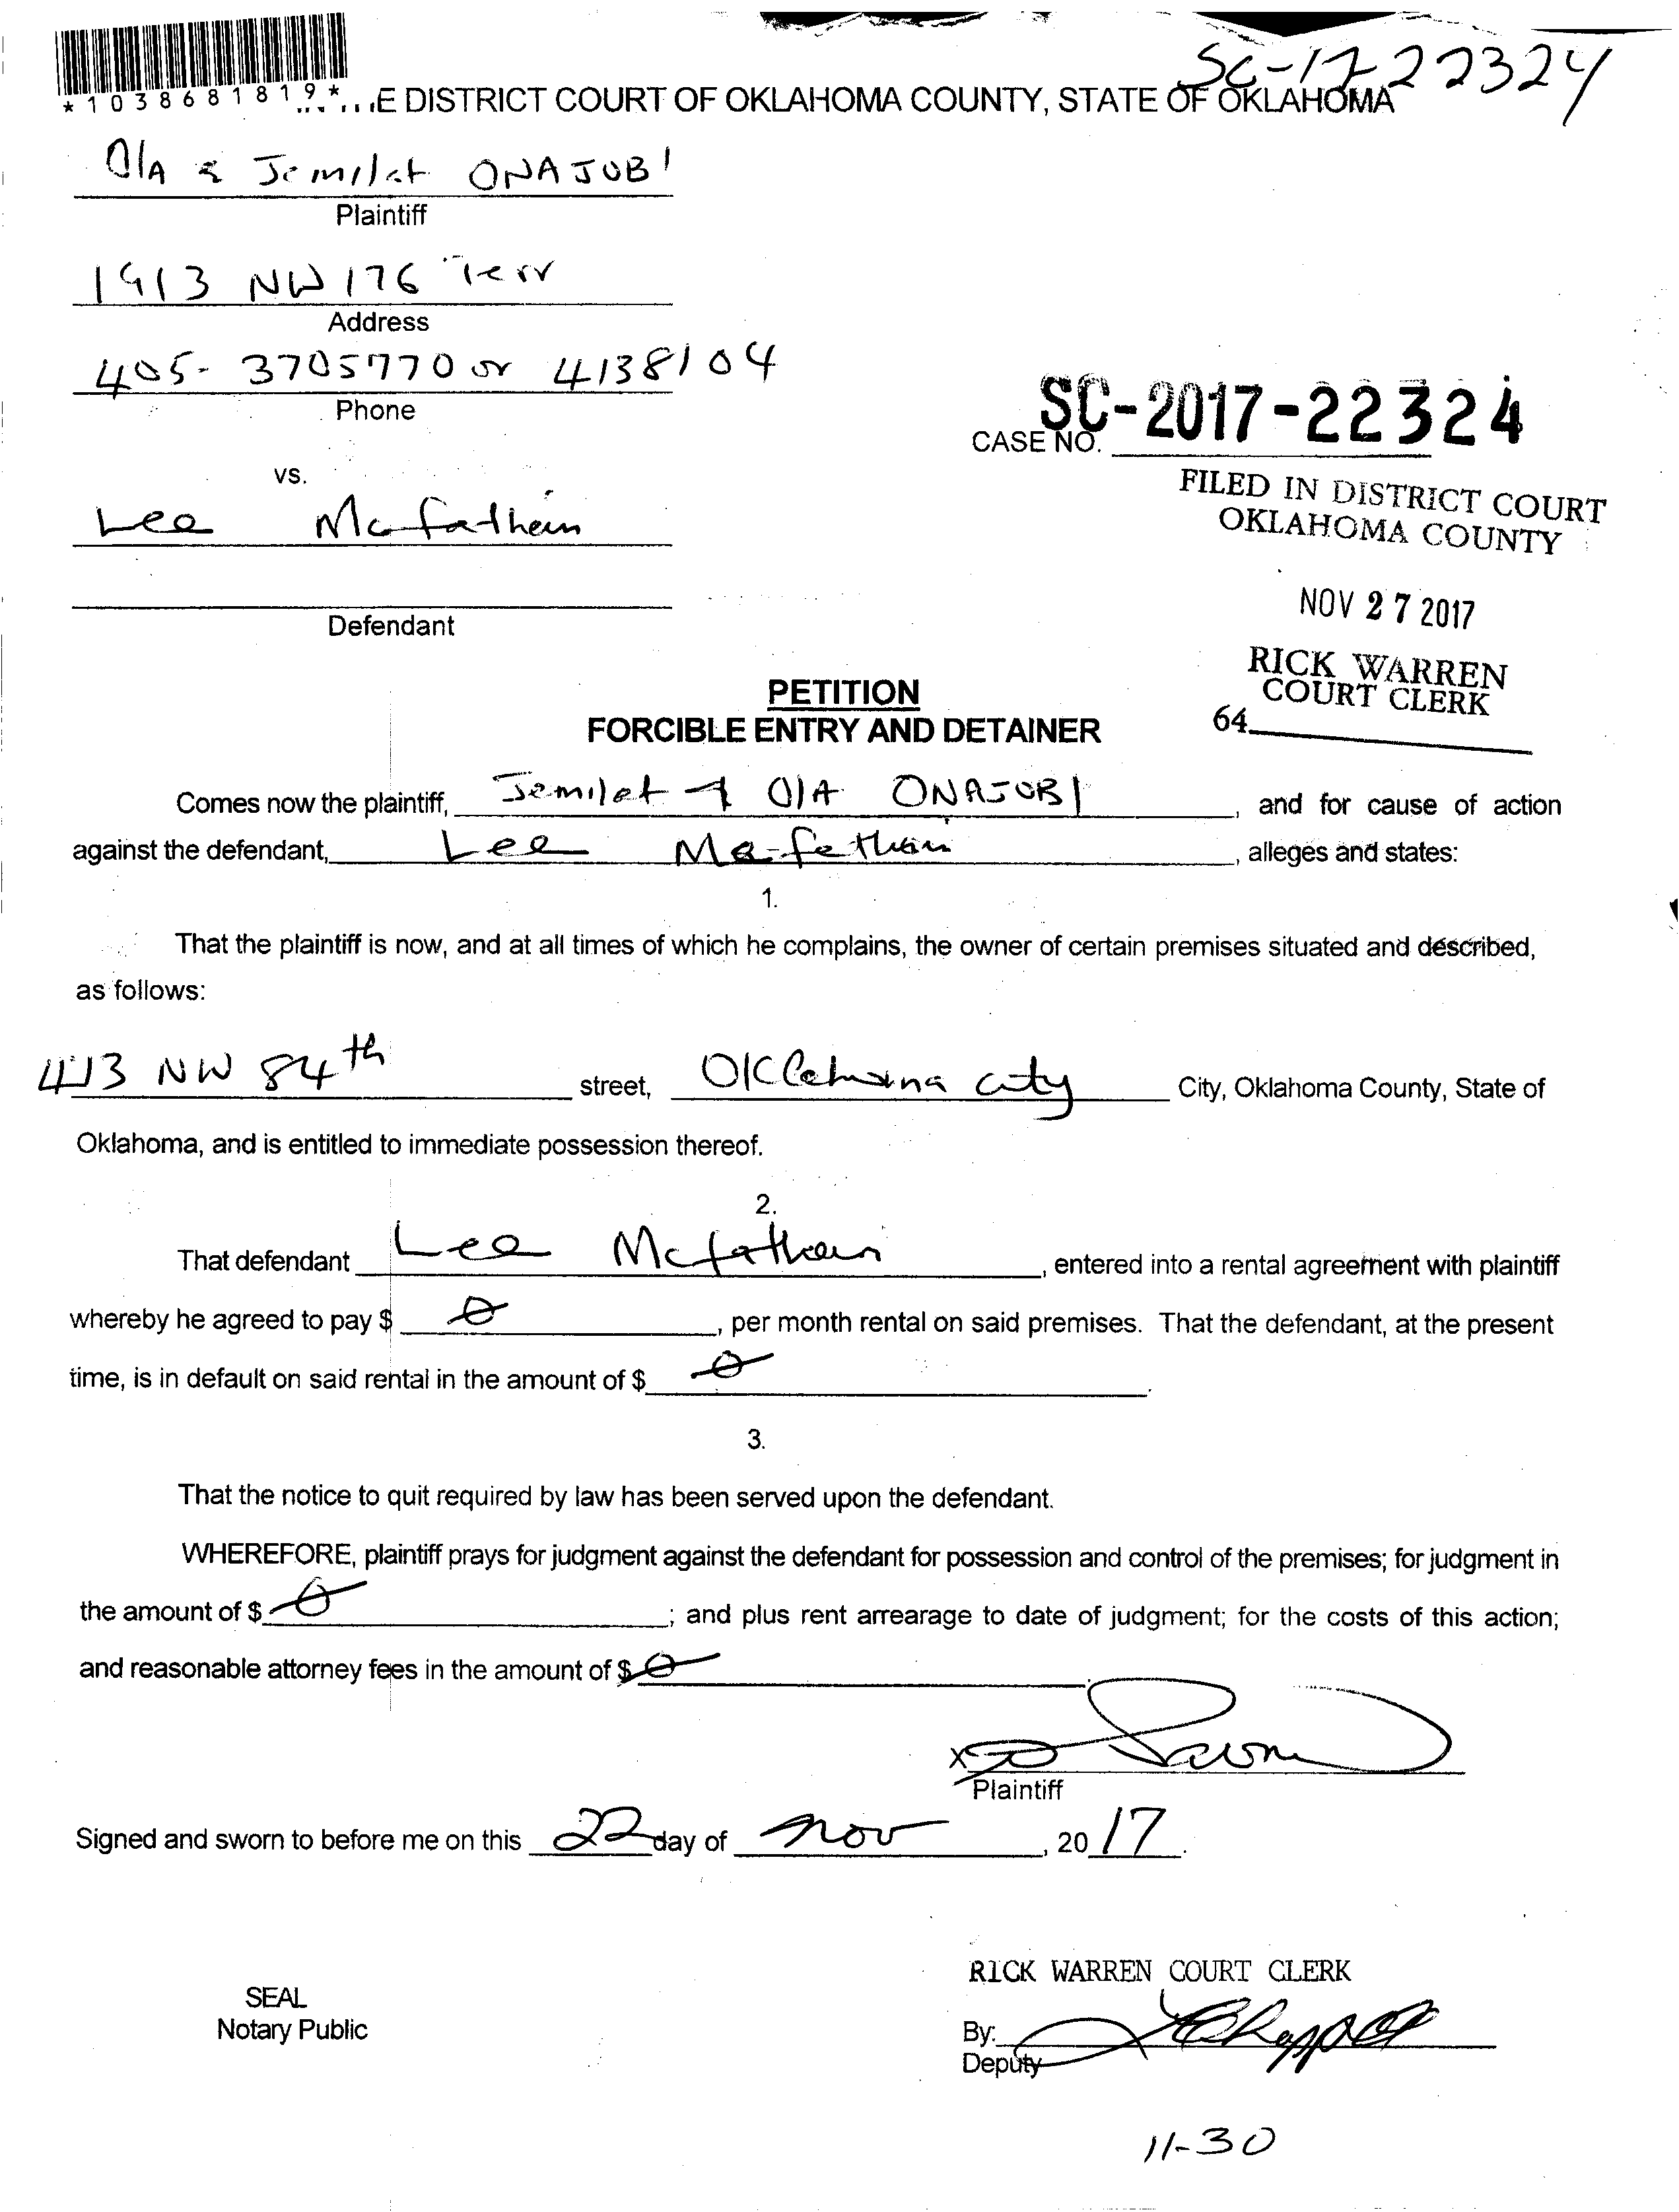 SC-17-22324
*1038681819*
E DISTRICT COURT OF OKLAHOMA COUNTY, STATE OF OKLAHOMA
OlA & Jemilat ONAJOBI
Plaintiff
1913 NW 176 Terr
Address
405- 3705770 or 4138104
Phone
SC-2017-22324
CASE NO.
vs.
FILED IN DISTRICT COURT
OKLAHOMA COUNTY
Lee Mcfathein
Defendant
NOV 27 2017
RICK WARREN
COURT CLERK
64
PETITION
FORCIBLE ENTRY AND DETAINER
Comes now the plaintiff, Jemilat & OlA ONAJOBI, and for cause of action
against the defendant, Lee, alleges and states:
1.
That the plaintiff is now, and at all times of which he complains, the owner of certain premises situated and described,
as follows:
413 NW 84th street, Oklahoma city City, Oklahoma County, State of
Oklahoma, and is entitled to immediate possession thereof.
2.
That defendant Lee, entered into a rental agreement with plaintiff
whereby he agreed to pay $ 0, per month rental on said premises. That the defendant, at the present
time, is in default on said rental in the amount of $ 0.
3.
That the notice to quit required by law has been served upon the defendant.
WHEREFORE, plaintiff prays for judgment against the defendant for possession and control of the premises; for judgment in
the amount of $ 0; and plus rent arrearage to date of judgment; for the costs of this action;
and reasonable attorney fees in the amount of $ 0.
X
Plaintiff
Signed and sworn to before me on this 22 day of nov, 2017.
RICK WARREN COURT CLERK
SEAL
Notary Public
By:
Deputy
11-30